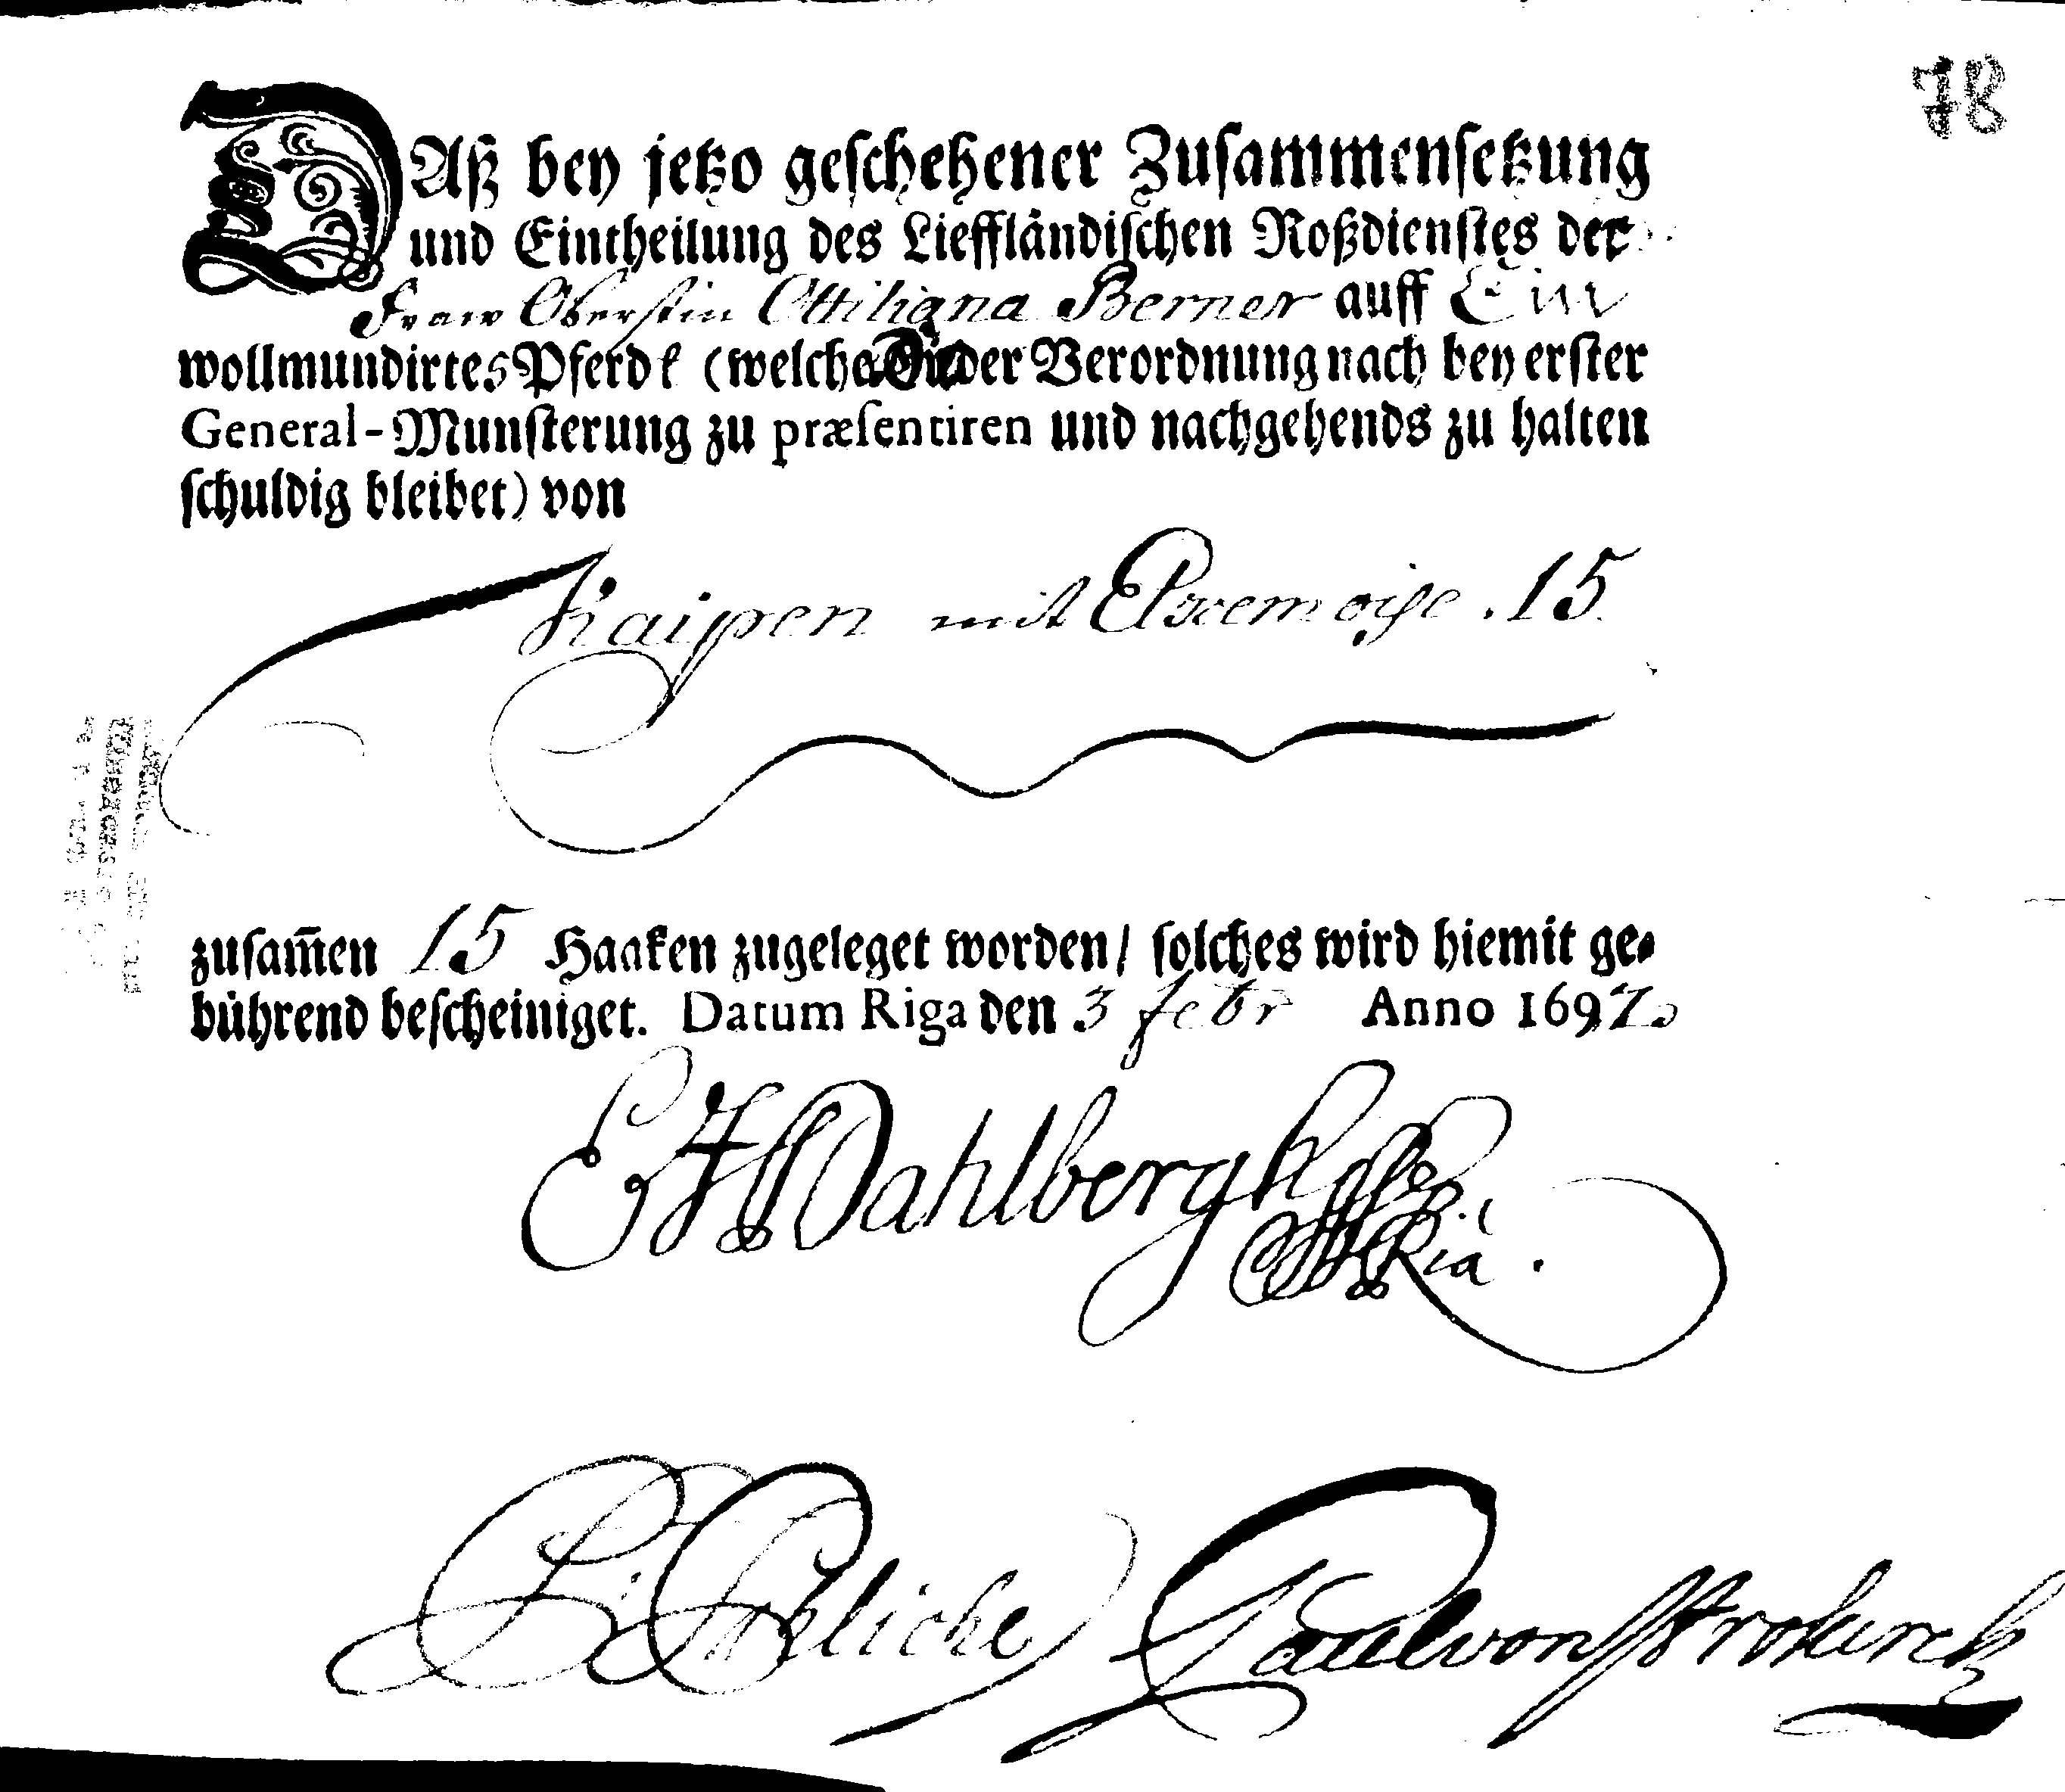 78
DAß bey jetzo geschehener Zusammensetzung
und Eintheilung des Lieffländischen Roßdienstes der
Fraw Oberstin Ottiliana Berner auff Ein
wollmundirtes Pferdt (welches Sie der Verordnung nach bey erster
General-Munsterung zu præsentiren und nachgehends zu halten
schuldig bleibet) von
Kaipen mit 15
zusam̃en 15 Haaken zugeleget worden / solches wird hiemit ge-
bührend bescheiniget. Datum Riga den 3 febr Anno 1697.
E Dahlbergh
Paul von Strokirch